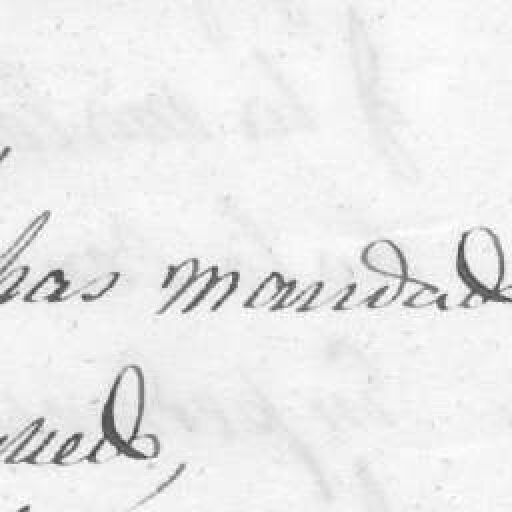 has mandad
ued,